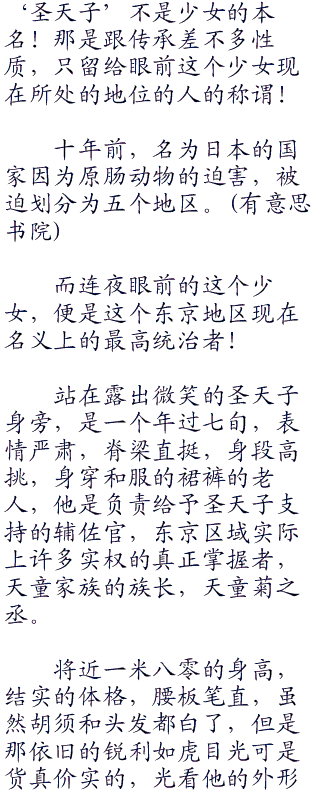 ‘圣天子’不是少女的本
名！那是跟传承差不多性
质，只留给眼前这个少女现
在所处的地位的人的称谓！
十年前，名为日本的国
家因为原肠动物的迫害，被
迫划分为五个地区。(有意思
书院)
而连夜眼前的这个少
女，便是这个东京地区现在
名义上的最高统治者！
站在露出微笑的圣天子
身旁，是一个年过七旬，表
情严肃，脊梁直挺，身段高
挑，身穿和服的裙裤的老
人，他是负责给予圣天子支
持的辅佐官，东京区域实际
上许多实权的真正掌握者，
天童家族的族长，天童菊之
丞。
将近一米八零的身高，
结实的体格，腰板笔直，虽
然胡须和头发都白了，但是
那依旧的锐利如虎目光可是
货真价实的，光看他的外形